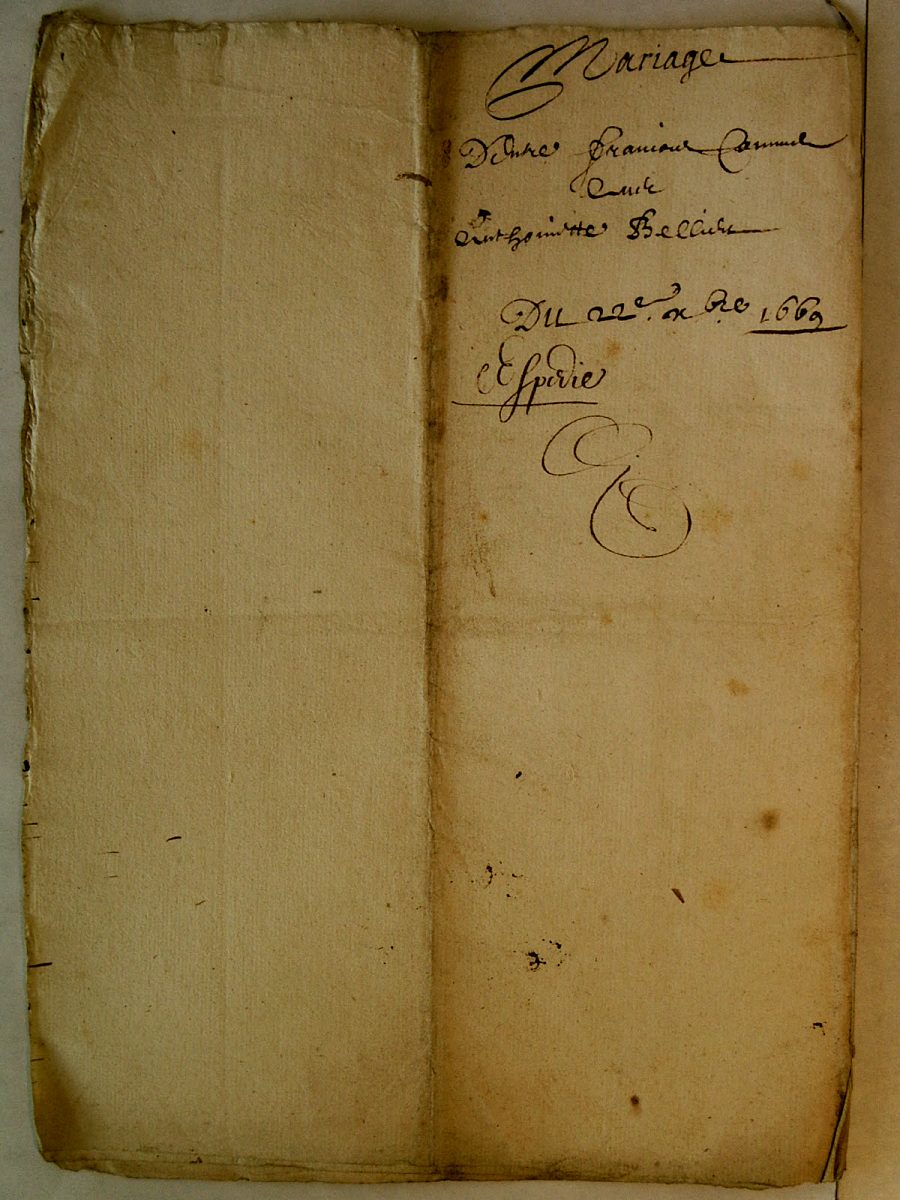 Mariage
D'Entre François Cammel
Avec
Anthoinette Bellier
Du 22e xbre 1669
Expedie